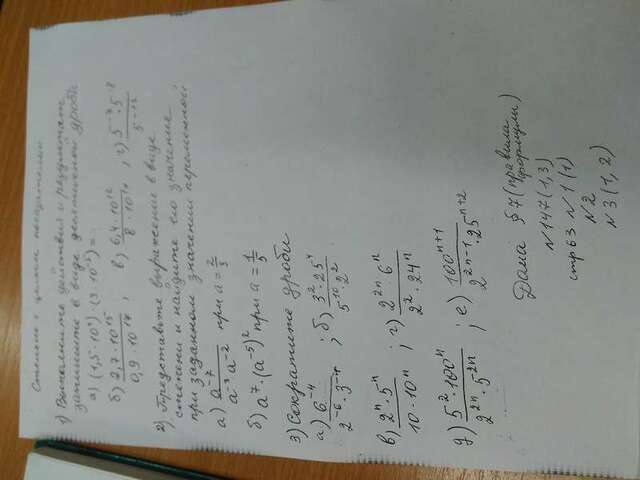 Степень с целым показателем
1) Выполните действия и результат
запишите в виде десятичной дроби
а) (1,5·10⁴)·(3·10⁻³) =
б) 2,7·10¹⁵ / 0,9·10¹⁴ ; в) 6,4·10¹² / 8·10¹⁴ ; г) 5⁻⁷·5⁻⁸ / 5⁻¹²
2) Представьте выражение в виде
степени и найдите его значение
при заданном значении переменной
а) a⁻⁷ / a⁻³·a⁻² при a = 2/3
б) a⁷·(a⁻⁵)² при a = 1/5
3) Сократите дроби
а) 6⁻⁴ / 2⁻⁶·3⁻⁴ ; б) 3²·25⁴ / 5¹⁰·2²
в) 2ⁿ·5ⁿ / 10·10ⁿ ; г) 2²ⁿ·6ⁿ / 2²·24ⁿ
д) 5²·100ⁿ / 2²ⁿ·5²ⁿ ; е) 100ⁿ⁺¹ / 2²ⁿ⁻¹·25ⁿ⁺²
Дома §7 (правила формулы)
№147(1,3)
стр 63 №1(1)
№2
№3(1,2)